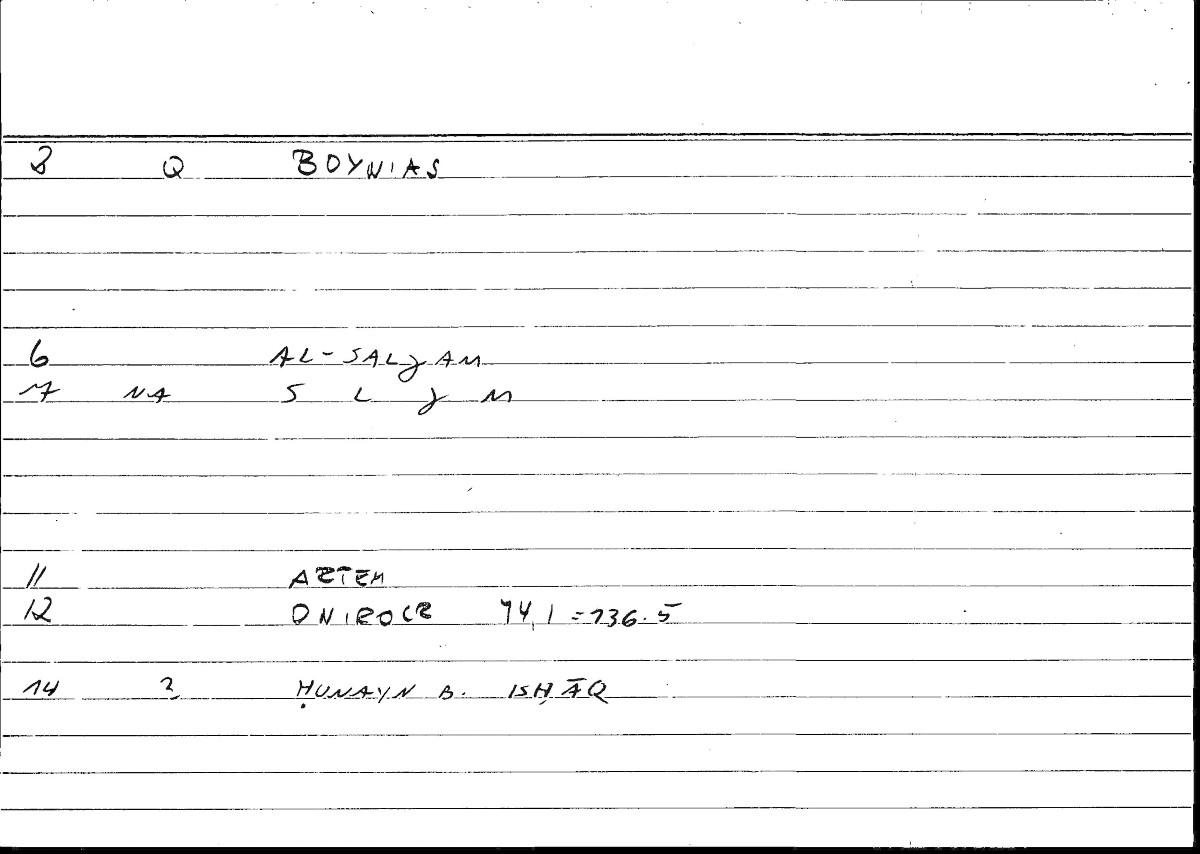 3 Q BOYNIAS
6 AL-SALJAM
7 NA S L J M
11 ARTEM
12 ONIROCR 74,1 = 136.5
14 2 ḤUNAYN B. ISḤĀQ